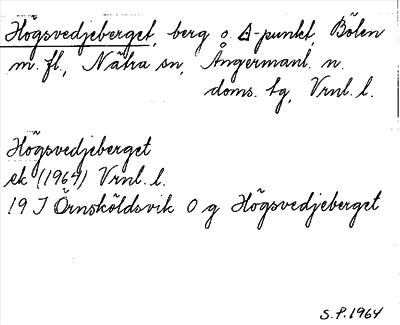 Högsvedjeberget, berg o. Δ-punkt, Bölen
m. fl., Nätra sn, Ångermanl. n.
doms. tg, Vrnl. l.
Högsvedjeberget
ek (1964) Vrnl. l.
19 J Örnsköldsvik O g Högsvedjeberget
S.P. 1964